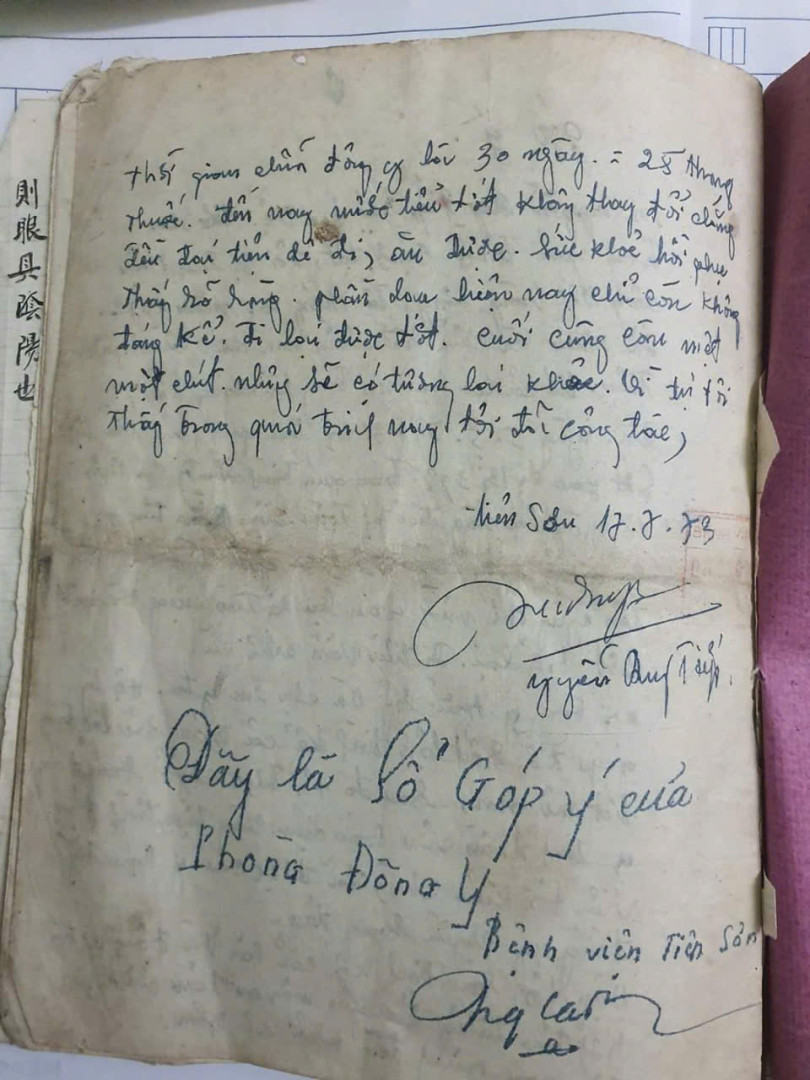 則眼具陰陽也
thời gian chữa đông y là 30 ngày. = 25 thang
thuốc. đến nay nước tiểu tốt không thay đổi cũng
đều đại tiện dễ đi, ăn được. Sức khoẻ hồi phục
thấy rõ rệt. phần đau hiện nay chỉ còn không
đáng kể. đi lại được tốt. cuối cùng còn một
một chút. những sẽ có tương lai khoẻ. Vì tôi
thấy trong quá trình nay tôi công tác,
tiên Sơn 17.7.73
Đây là Sổ Góp ý của
Phòng Đông Y
Bệnh viện Tiên Sơn